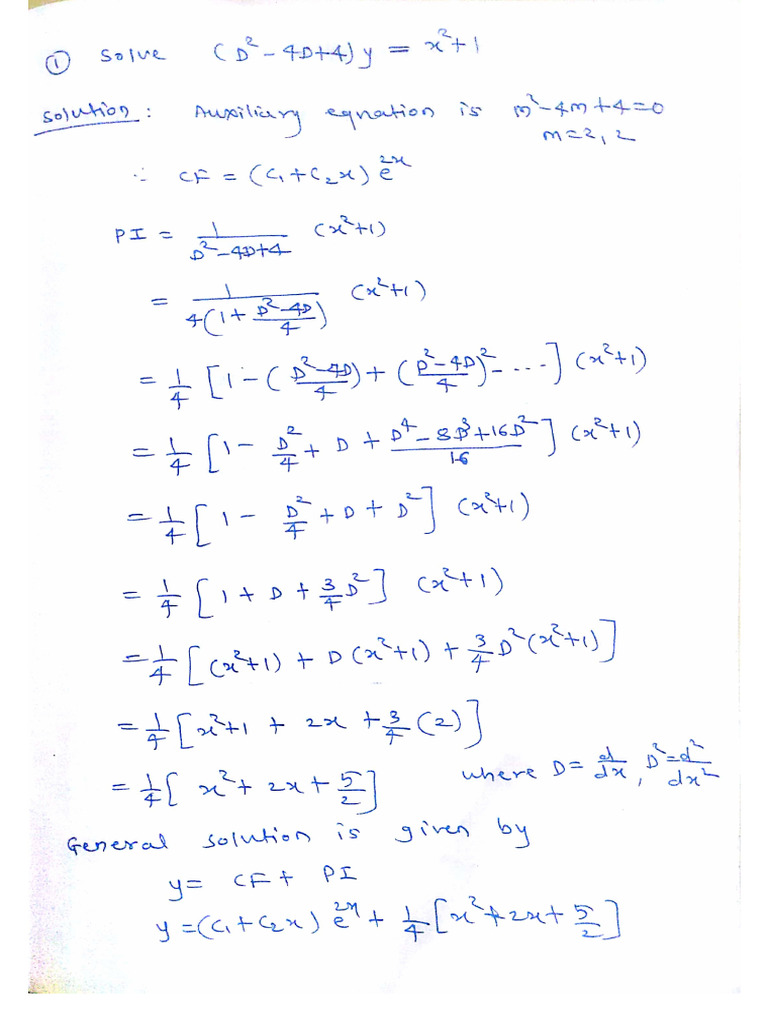 ① Solve (D² - 4D+4) y = x²+1
Solution : Auxiliary equation is m²-4m+4=0
m=2, 2
∵ CF = (C₁+C₂x) e²ˣ
PI = 1/(D²-4D+4) (x²+1)
= 1/(4(1+ (D²-4D)/4)) (x²+1)
= 1/4 [1-((D²-4D)/4)+((D²-4D)/4)²- ...] (x²+1)
= 1/4 [1- D²/4 + D + (D⁴-8D³+16D²)/16] (x²+1)
= 1/4 [1 - D²/4 + D + D²] (x²+1)
= 1/4 [1+D+3/4 D²] (x²+1)
= 1/4 [(x²+1) + D(x²+1) + 3/4 D²(x²+1)]
= 1/4 [x²+1 + 2x + 3/4 (2)]
= 1/4 [x²+ 2x+ 5/2] where D= d/dx, D²=d²/dx²
General solution is given by
y= CF+ PI
y=(C₁+C₂x) e²ˣ + 1/4 [x²+2x+ 5/2]